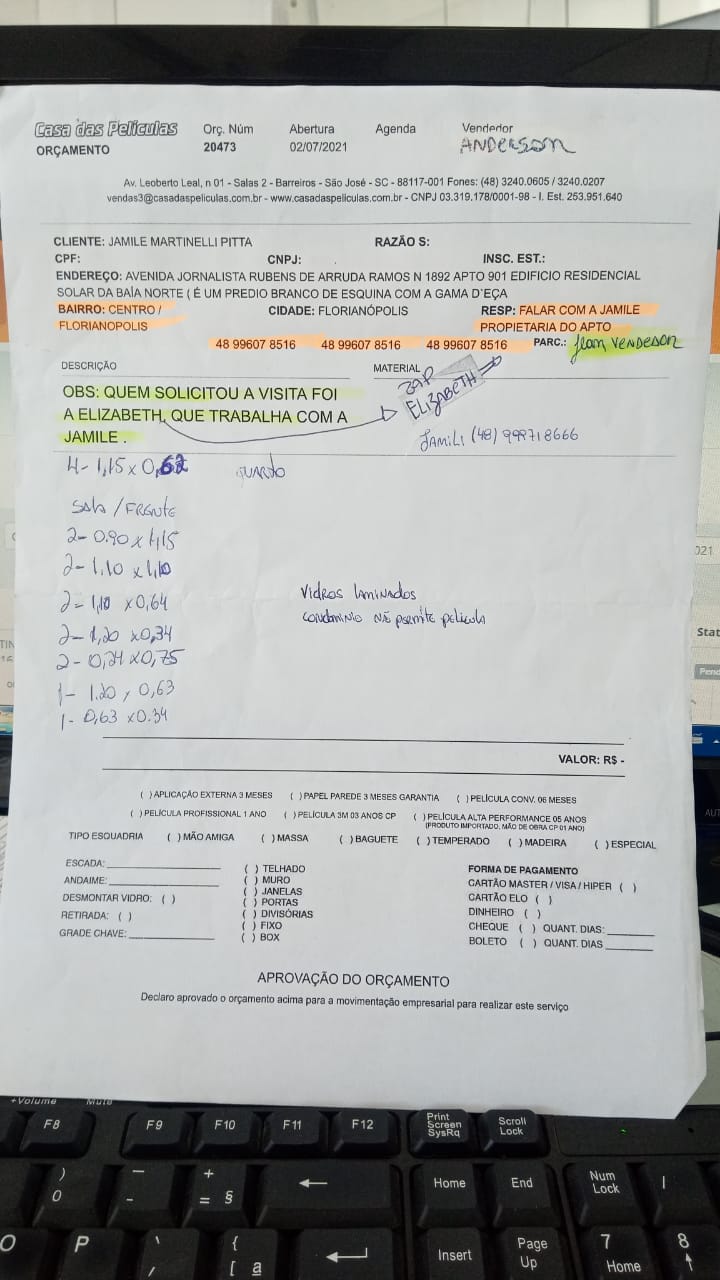 Casa das Películas Orç. Núm Abertura Agenda Vendedor
ORÇAMENTO 20473 02/07/2021 ANDERSON
Av. Leoberto Leal, n 01 - Salas 2 - Barreiros - São José - SC - 88117-001 Fones: (48) 3240.0605 / 3240.0207
vendas3@casadaspeliculas.com.br - www.casadaspeliculas.com.br - CNPJ 03.319.178/0001-98 - I. Est. 253.951.640
CLIENTE: JAMILE MARTINELLI PITTA RAZÃO S:
CPF: CNPJ: INSC. EST.:
ENDEREÇO: AVENIDA JORNALISTA RUBENS DE ARRUDA RAMOS N 1892 APTO 901 EDIFICIO RESIDENCIAL
SOLAR DA BAÍA NORTE ( É UM PREDIO BRANCO DE ESQUINA COM A GAMA D'EÇA
BAIRRO: CENTRO / CIDADE: FLORIANÓPOLIS RESP: FALAR COM A JAMILE
FLORIANOPOLIS PROPIETARIA DO APTO
48 99607 8516 48 99607 8516 48 99607 8516 PARC.: Jean VENDEDOR
DESCRIÇÃO MATERIAL
ZAP
OBS: QUEM SOLICITOU A VISITA FOI ELIZABETH
A ELIZABETH, QUE TRABALHA COM A
JAMILE . JAMILI (48) 999718666
4- 1,15 x 0,62 QUARTO
SALA / FRENTE
2- 0.90 x 1,15
2- 1,10 x 1,10
2- 1,10 x 0,64
2- 1,20 x 0,34
2- 0,34 x 0,75
1- 1.20 , 0,63
1- 0,63 x 0.34
VIDROS LAMINADOS
CONDOMINIO NÃO PERMITE PELICULA
VALOR: R$ -
( ) APLICAÇÃO EXTERNA 3 MESES ( ) PAPEL PAREDE 3 MESES GARANTIA ( ) PELÍCULA CONV. 06 MESES
( ) PELÍCULA PROFISSIONAL 1 ANO ( ) PELÍCULA 3M 03 ANOS CP ( ) PELÍCULA ALTA PERFORMANCE 05 ANOS
(PRODUTO IMPORTADO, MÃO DE OBRA CP 01 ANO)
TIPO ESQUADRIA ( ) MÃO AMIGA ( ) MASSA ( ) BAGUETE ( ) TEMPERADO ( ) MADEIRA ( ) ESPECIAL
ESCADA:
ANDAIME:
DESMONTAR VIDRO: ( )
RETIRADA: ( )
GRADE CHAVE:
( ) TELHADO
( ) MURO
( ) JANELAS
( ) PORTAS
( ) DIVISÓRIAS
( ) FIXO
( ) BOX
FORMA DE PAGAMENTO
CARTÃO MASTER / VISA / HIPER ( )
CARTÃO ELO ( )
DINHEIRO ( )
CHEQUE ( ) QUANT. DIAS:
BOLETO ( ) QUANT. DIAS
APROVAÇÃO DO ORÇAMENTO
Declaro aprovado o orçamento acima para a movimentação empresarial para realizar este serviço
021
Stat
Pend
AUT
+Volume Mute
F8 F9 F10 F11 F12 Print Screen SysRq Scroll Lock
) 0 - + = § Home End Num Lock /
O P { [ ª Insert Page Up 7 Home 8